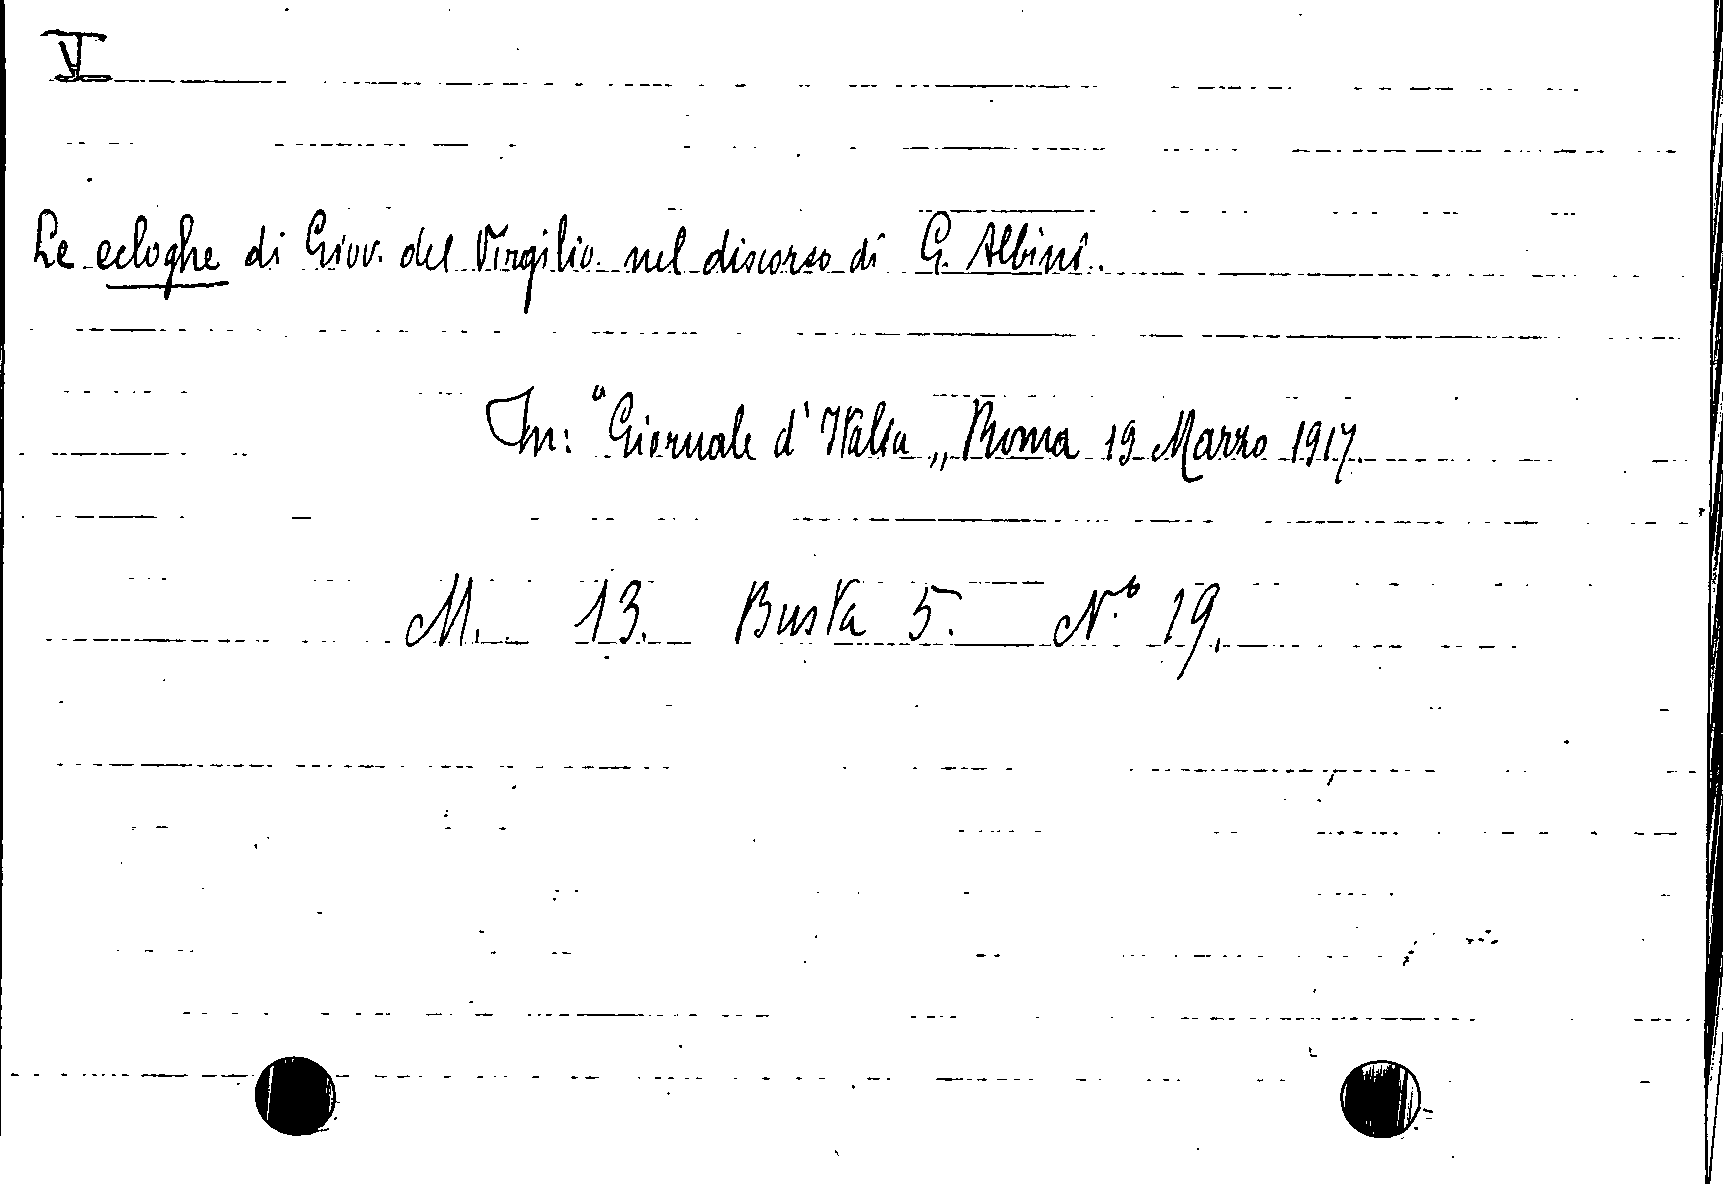 VI
Le ecloghe di Giov. del Virgilio nel discorso di G. Albini.
In: "Giornale d'Italia„ Roma 19 Marzo 1917.
M. 13. Busta 5. N.° 19.